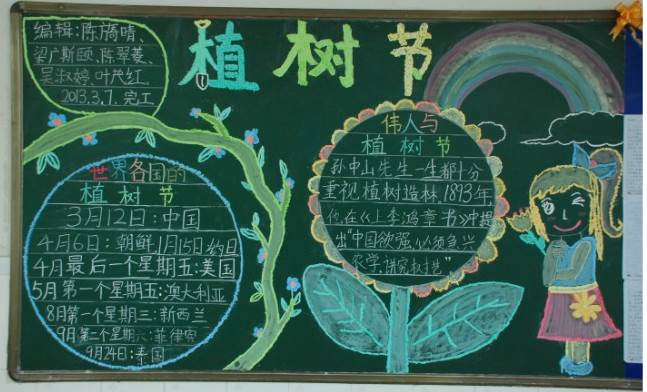 编辑:陈旖晴、
梁广斯颐、陈翠菱、
吴淑婷、叶茂红.
2013.3.7.完工
植树节
世界各国的
植树节
3月12日:中国
4月6日:朝鲜,1月15日:约旦
4月最后一个星期五:美国
5月第一个星期五:澳大利亚
8月第一个星期三:新西兰
9月第二个星期六:菲律宾
9月24日:泰国
伟人与
植树节
孙中山先生一生都十分
重视植树造林,1893年
他在《上李鸿章书》中提
出“中国欲强,必须急兴
农学,讲究树艺”